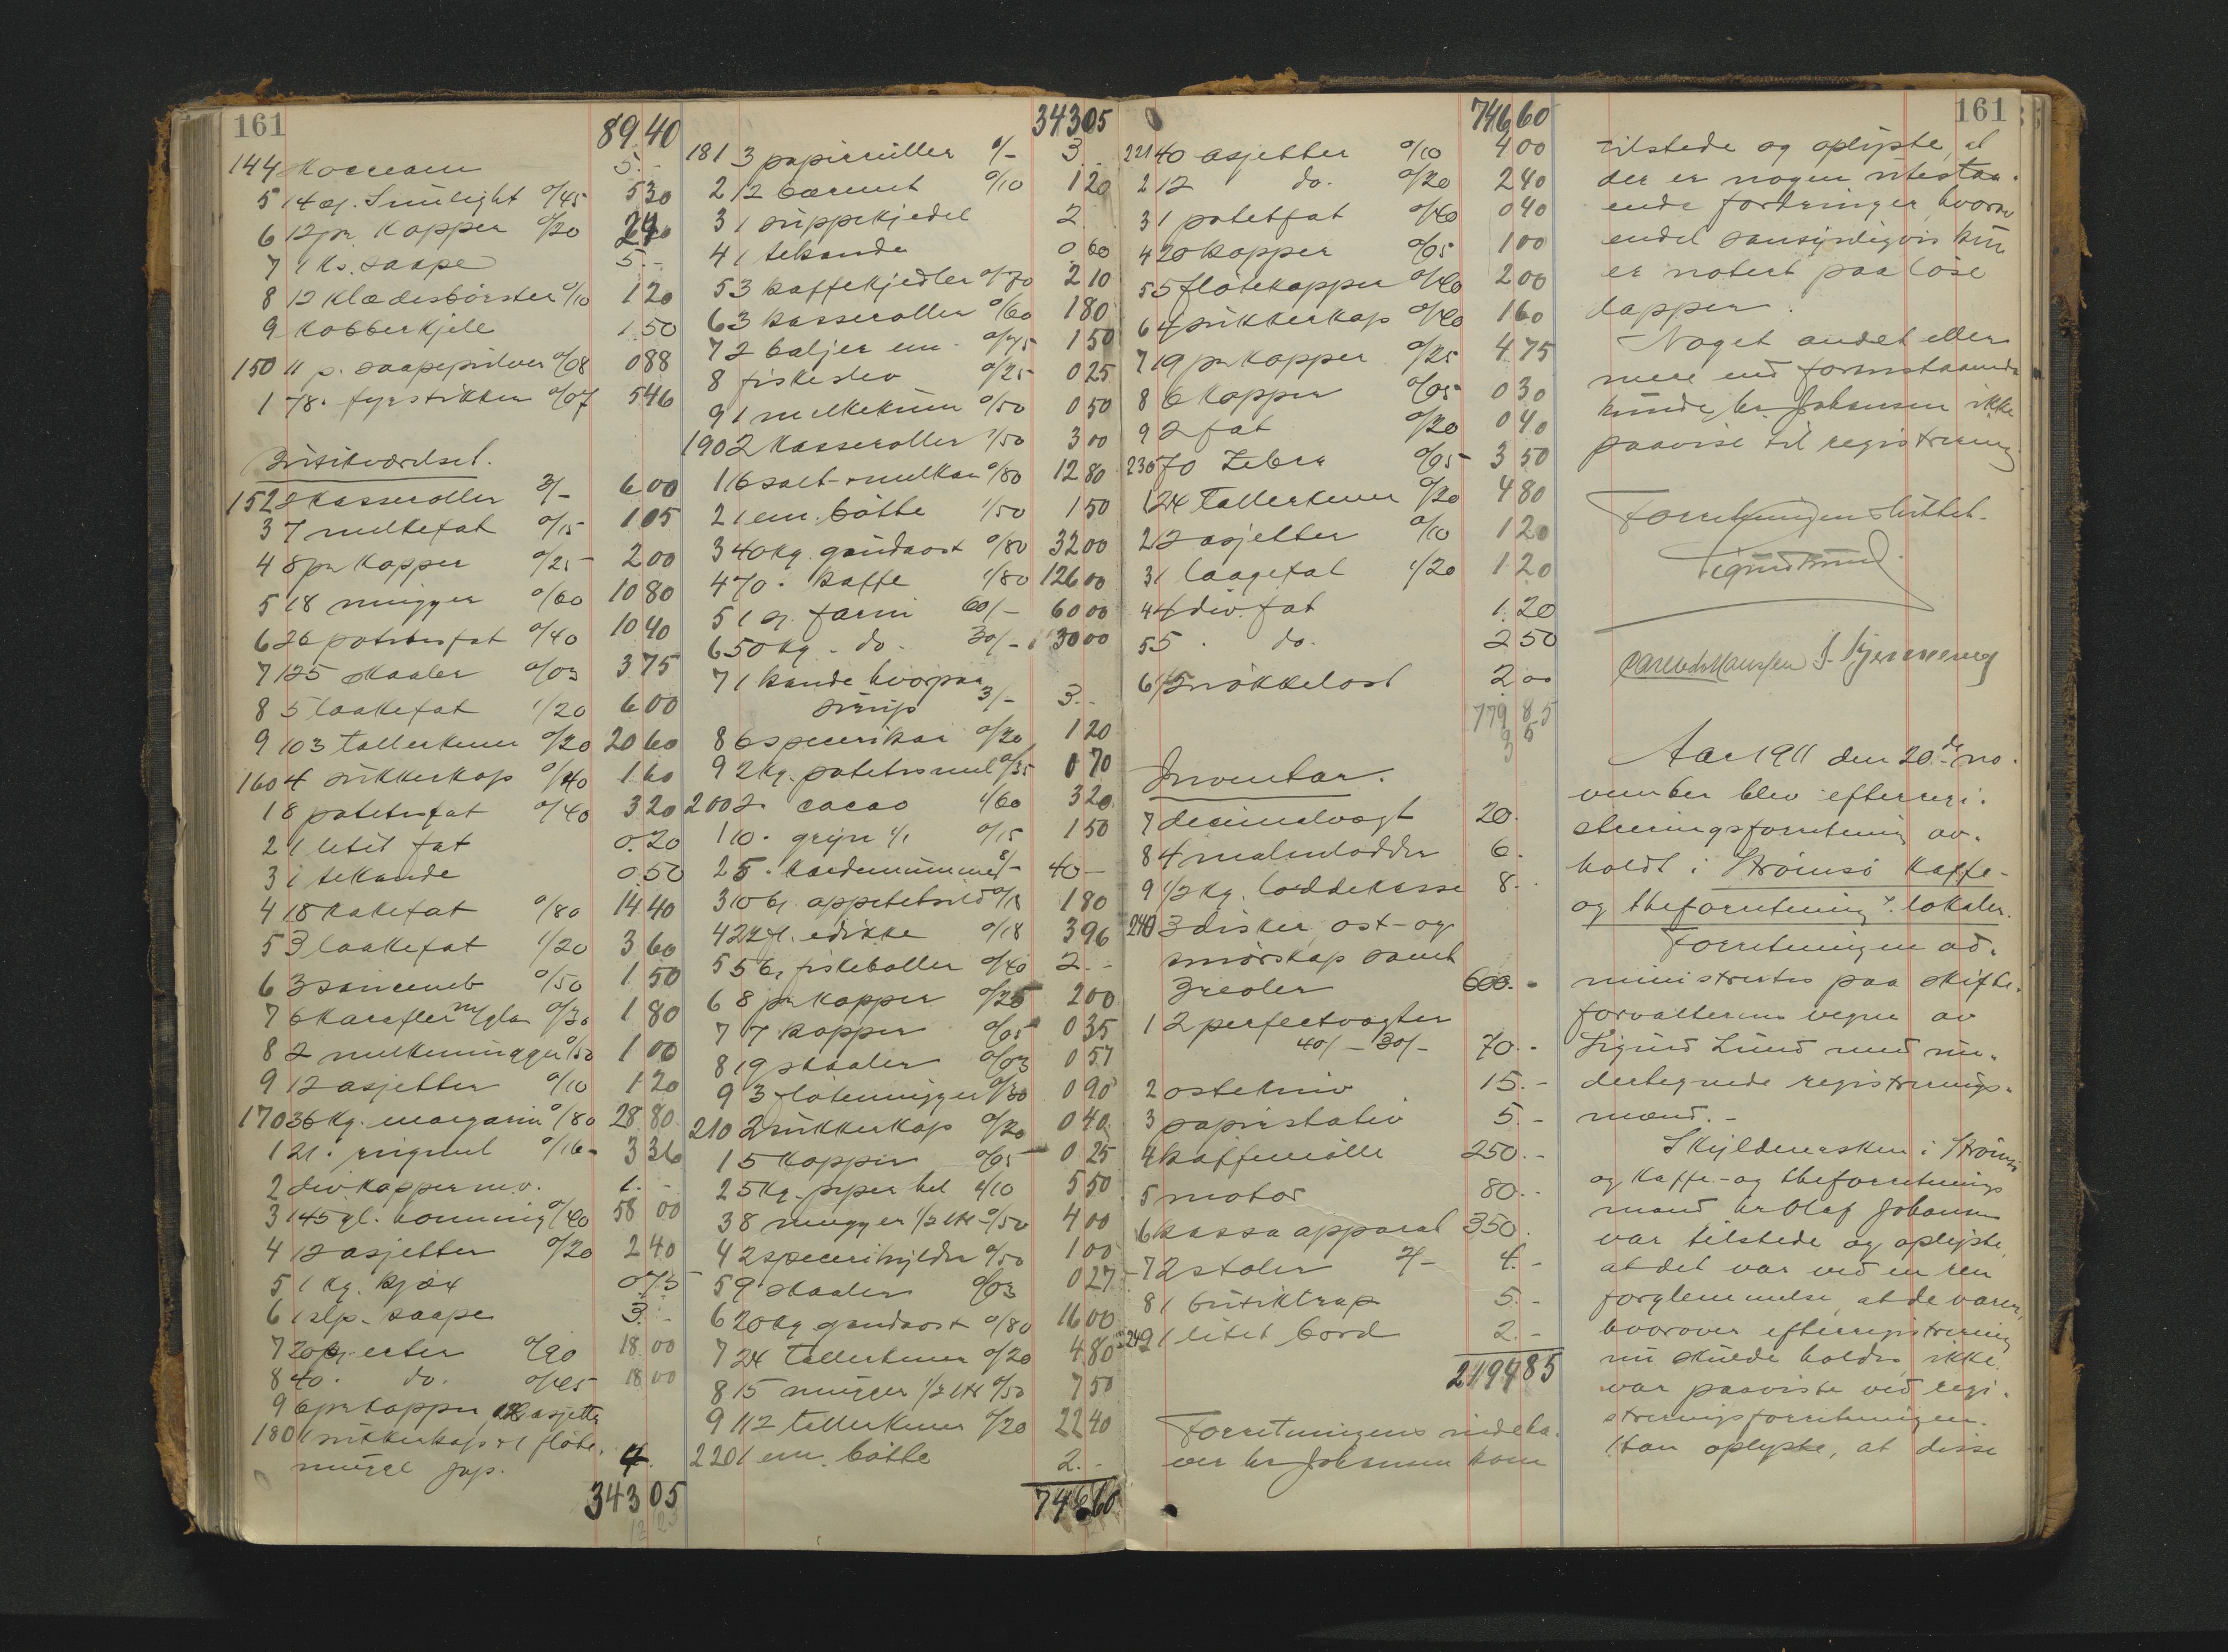 161
89 40
144 Mocream 5.-
5 14 æ. Sunlight 0/45 5 30
6 12 pr Kopper 0/20 2 40
7 1 ks. saape 5.-
8 12 klædesbörster 0/10 1 20
9 Kobberkjele 1.50
150 11 p. saapepulver 0/08 0 88
1 78. fyrstikker 0/07 5 46
Butikværelset.
152 2 kasseroller 3/- 6 00
3 7 melkefat 0/15 1 05
4 8 pr kopper 0/25 2 00
5 18 mugger 0/60 10 80
6 26 potetesfat 0/40 10 40
7 125 skaaler 0/03 3 75
8 5 laakefat 1/20 6 00
9 103 tallerkener 0/20 20 60
160 4 sukkerkop 0/40 1 60
1 8 potetesfat 0/40 3 20
2 1 litet fat 0.20
3 1 tekande 0.50
4 18 kakefat 0/80 14 40
5 3 laakefat 1/20 3 60
6 3 sauceneb 0/50 1 50
7 6 karafler m/glas 0/30 1 80
8 2 melkemugger 0/50 1 00
9 12 asjetter 0/10 1 20
170 36 kg. margarin 0/80 28 80
1 21. rugmel 0/16 3 36
2 div. kopper m.v. 1.-
3 145 gl. honning 0/40 58 00
4 12 asjetter 0/20 2 40
5 1 kg. kjæx 0.75
6 1 slp. saape 3.-
7 20 bx. erter 0/90 18 00
8 40. do. 0/45 18 00
9 6 pr kopper, 12 asjetter
180 1 sukkerkop + 1 fløte-
mugge jap. 4.
343 05
343 05
181 3 papirruller 1/- 3.
2 12 bærnet 0/10 1 20
3 1 suppekjedel 2
4 1 tekande 0.60
5 3 kaffekjedler 0/70 2 10
6 3 kasseroller 0/60 1 80
7 2 baljer em. 0/75 1 50
8 fiskeslev 0/25 0 25
9 1 melkekum 0/50 0 50
190 2 kasseroller 1/50 3 00
1 16 salt- + melkar 0/80 12 80
2 1 em. bötte 1/50 1 50
3 40 kg. gaudaost 0/80 32 00
4 70. kaffe 1/80 126 00
5 1 s. farin 60/- 60 00
6 50 kg. do. 30/- 30 00
7 1 kande hvorpaa
sirup 3/- 3.-
8 6 specerikar 0/20 1 20
9 2 kg. potetesmel 0/35 0 70
200 2. cacao 1/60 3 20
1 10. gryn 1/1 0/15 1 50
2 5. kardemumme 8/- 40 -
3 10 bx. appetitsild 0/18 1 80
4 22 fl. edikke 0/18 3 96
5 5 bx fiskeboller 0/40 2.-
6 8 pr kopper 0/25 2 00
7 7 kopper 0/05 0 35
8 19 skaaler 0/03 0 57
9 3 flötemugger 0/30 0 90
210 2 sukkerkop 0/20 0 40
1 5 kopper 0/05 0 25
2 5 kg. peper hel 1/10 5 50
3 8 mugger 1/2 ltr 0/50 4 00
4 2 specerihylder 0/50 1 00
5 9 skaaler 0/03 0 27
6 20 kg gaudaost 0/80 16 00
7 24 tallerkener 0/20 4 80
8 15 mugger 1/2 ltr 0/50 7 50
9 112 tallerkener 0/20 22 40
220 1 em. bötte 2.-
746 60
746 60
221 40 asjetter 0/10 4 00
2 12 do. 0/20 2 40
3 1 potetfat 0/40 0 40
4 20 kopper 0/05 1 00
5 5 flötekopper 0/40 2 00
6 4 sukkerkop 0/40 1 60
7 19 pr kopper 0/25 4 75
8 6 kopper 0/05 0 30
9 2 fat 0/20 0 40
230 70 Zebra 0/05 3 50
1 24 tallerkener 0/20 4 80
2 12 asjetter 0/10 1 20
3 1 laagefat 1/20 1 20
4 4 div. fat 1.20
5 5. do. 2 50
6 1/2 nökkelost 2 00
779 85
Inventar.
7 decimalvægt 20.
8 4 malmlodder 6.
9 1/2 kg. loddekasse 8.-
240 3 disker, ost- og
smörskap samt
3 reoler 600.-
1 2 perfectvægter
40/- 30/- 70.-
2 ostekniv 15.-
3 papirstativ 5.-
4 kaffemölle 250.-
5 motor 80.-
6 kassaapparat 350.
7 2 stoler 2/- 4.-
8 1 butiktrap 5.-
249 1 litet bord 2.-
2194 85
Forretningens indeha-
ver hr Johansen kom
161
tilstede og oplyste, at
der er nogen utestaa-
ende fordringer, hvorav
endel sansynligvis kun
er notert paa löse
lapper.
Noget andet eller
mere end formstaaende
kunde hr. Johansen ikke
paavise til registrering
Forretningen sluttet.
Sigurd Lund.
Carl Hanssen J. Kjenneng
Aar 1911 den 20de no-
vember blev efterregi-
streringsforretning av-
holdt i Strömsö kaffe-
og theforretnings lokaler.
Forretningen ad-
ministrertes paa skifte-
forvalterens vegne av
Sigurd Lund med un-
dertegnede registrerings-
mænd.-
Skyldnersken i Strömsö
og kaffe- og theforretnings
mand hr Olaf Johansen
var tilstede og oplyste,
at det var ved en ren
forglemmelse, at de varer,
hvorover efterregistrering
nu skulde holdes, ikke
var paaviste ved regi-
streringsforretningen.
Han oplyste, at disse